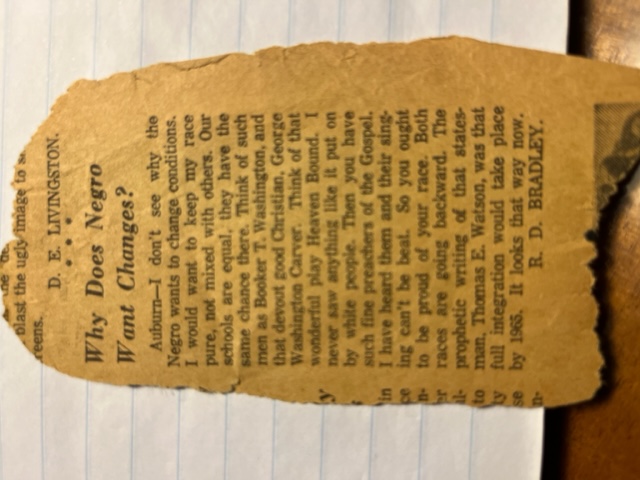 plast the ugly image to
reens.
D. E. LIVINGSTON.
Why Does Negro
Want Changes?
Auburn—I don't see why the
Negro wants to change conditions.
I would want to keep my race
pure, not mixed with others. Our
schools are equal, they have the
same chance there. Think of such
men as Booker T. Washington, and
that devout good Christian, George
Washington Carver. Think of that
wonderful play Heaven Bound. I
never saw anything like it put on
by white people. Then you have
such fine preachers of the Gospel.
I have heard them and their sing-
ing can't be beat. So you ought
to be proud of your race. Both
races are going backward. The
prophetic writing of that states-
man, Thomas E. Watson, was that
full integration would take place
by 1965. It looks that way now.
R. D. BRADLEY.
y
in
ce
n-
er
ul-
to
ty
se
n-